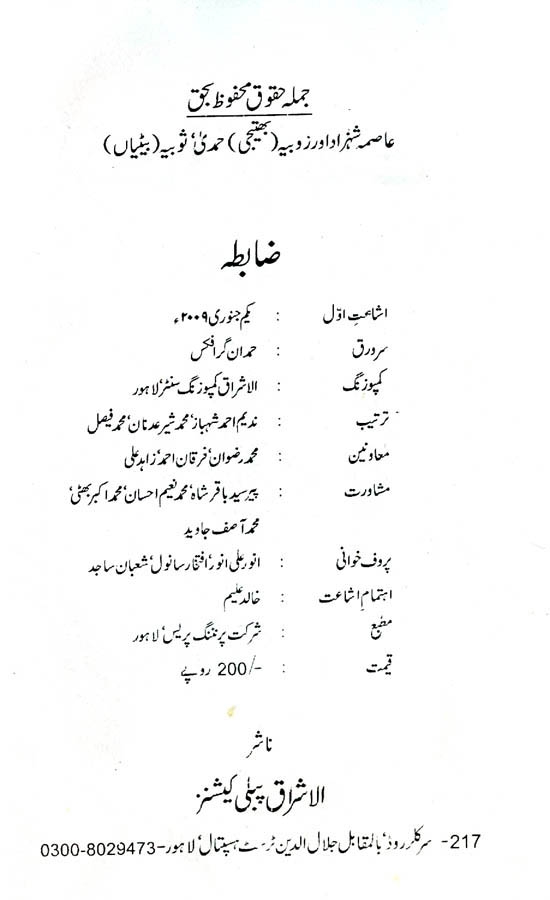 جملہ حقوق محفوظ بحق
عاصمہ شہزاد اور زوبیہ (بھتیجی) حمدیٰ، ثوبیہ (بیٹیاں)
ضابطہ
اشاعتِ اوّل : یکم جنوری ۲۰۰۹ء
سرورق : حمدان گرافکس
کمپوزنگ : الاشراق کمپوزنگ سنٹر لاہور
ترتیب : ندیم احمد شہباز، محمد شیر عدنان، محمد فیصل
معاونین : محمد رضوان، فرقان احمد، زاہد علی
مشاورت : پیر سید باقر شاہ، محمد نعیم احسان، محمد اکبر بھٹی،
محمد آصف جاوید
پروف خوانی : انور علی انور، افتخار سانول، شعبان ساجد
اہتمامِ اشاعت : خالد علیم
مطبع : شرکت پرنٹنگ پریس، لاہور
قیمت : 200/- روپے
ناشر
الاشراق پبلی کیشنز
217- سرکلر روڈ، بالمقابل جلال الدین ٹرسٹ ہسپتال، لاہور-0300-8029473